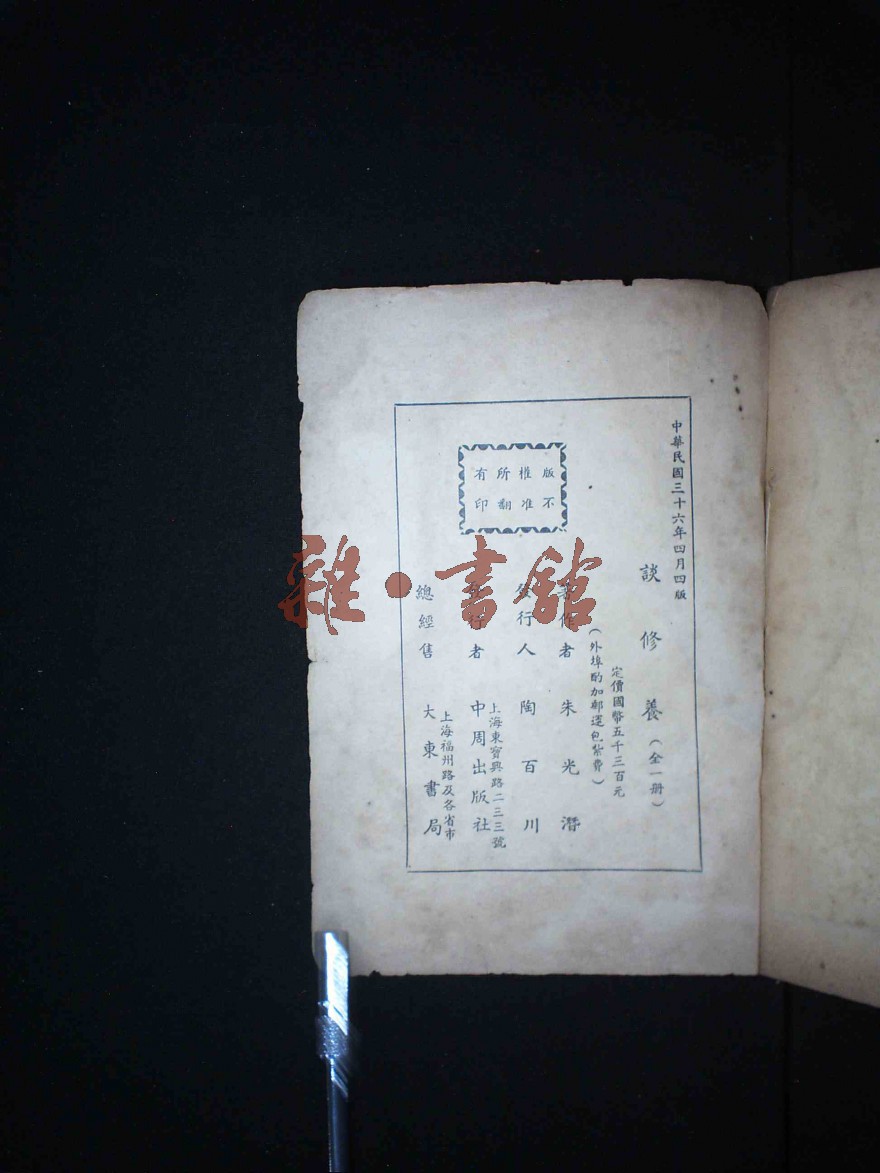 中華民國三十六年四月四版
談修養(全一册)
定價國幣五千三百元
(外埠酌加郵運包紮費)
著作者 朱光潛
發行人 陶百川
發行者 中周出版社
上海東寶興路二三三號
總經售 大東書局
上海福州路及各省市
版權所有
不准翻印
雜·書舘